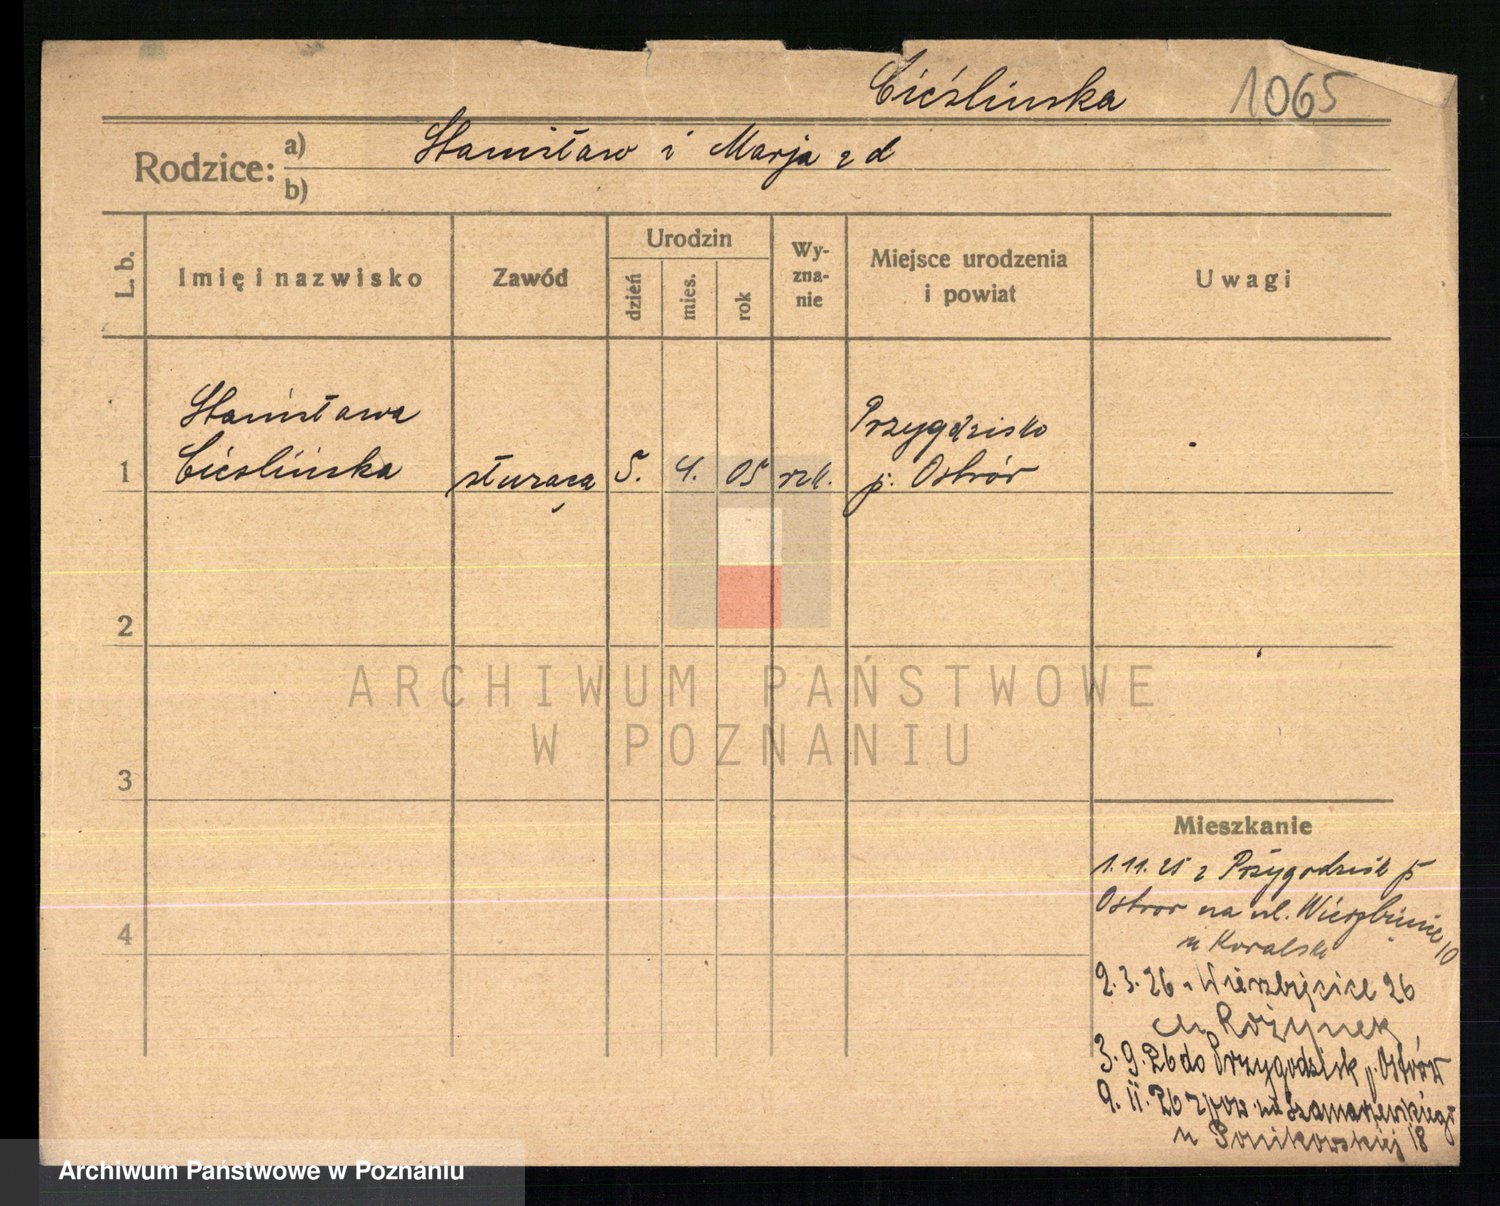 Cieślinska 1065
Rodzice: a) Stanisław i Marja z d
b)
L. b. Imię i nazwisko Zawód Urodzin dzień mies. rok Wy-zna-nie Miejsce urodzenia i powiat Uwagi
Stanisława Przygodzisko
1 Cieslińska służąca 5. 4. 05 rzk. p. Ostrów
2
ARCHIWUM PAŃSTWOWE
W POZNANIU
3
Mieszkanie
1.11.25 z Przygodzisk p
4 Ostrow na ul. Wierzbięcice 10
u Kowalski
2.3.26 Wierzbięcice 26
u Rożynek
3.9.26 do Przygodzisk p. Ostrów
9.11.26 z pow. Szamarzewskiego
u Ponikowskiej 18
Archiwum Państwowe w Poznaniu